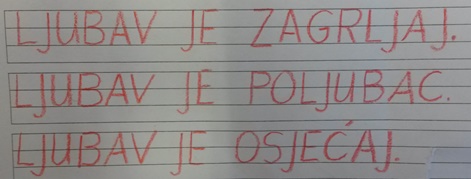 LJUBAV JE ZAGRLJAJ.
LJUBAV JE POLJUBAC.
LJUBAV JE OSJEĆAJ.